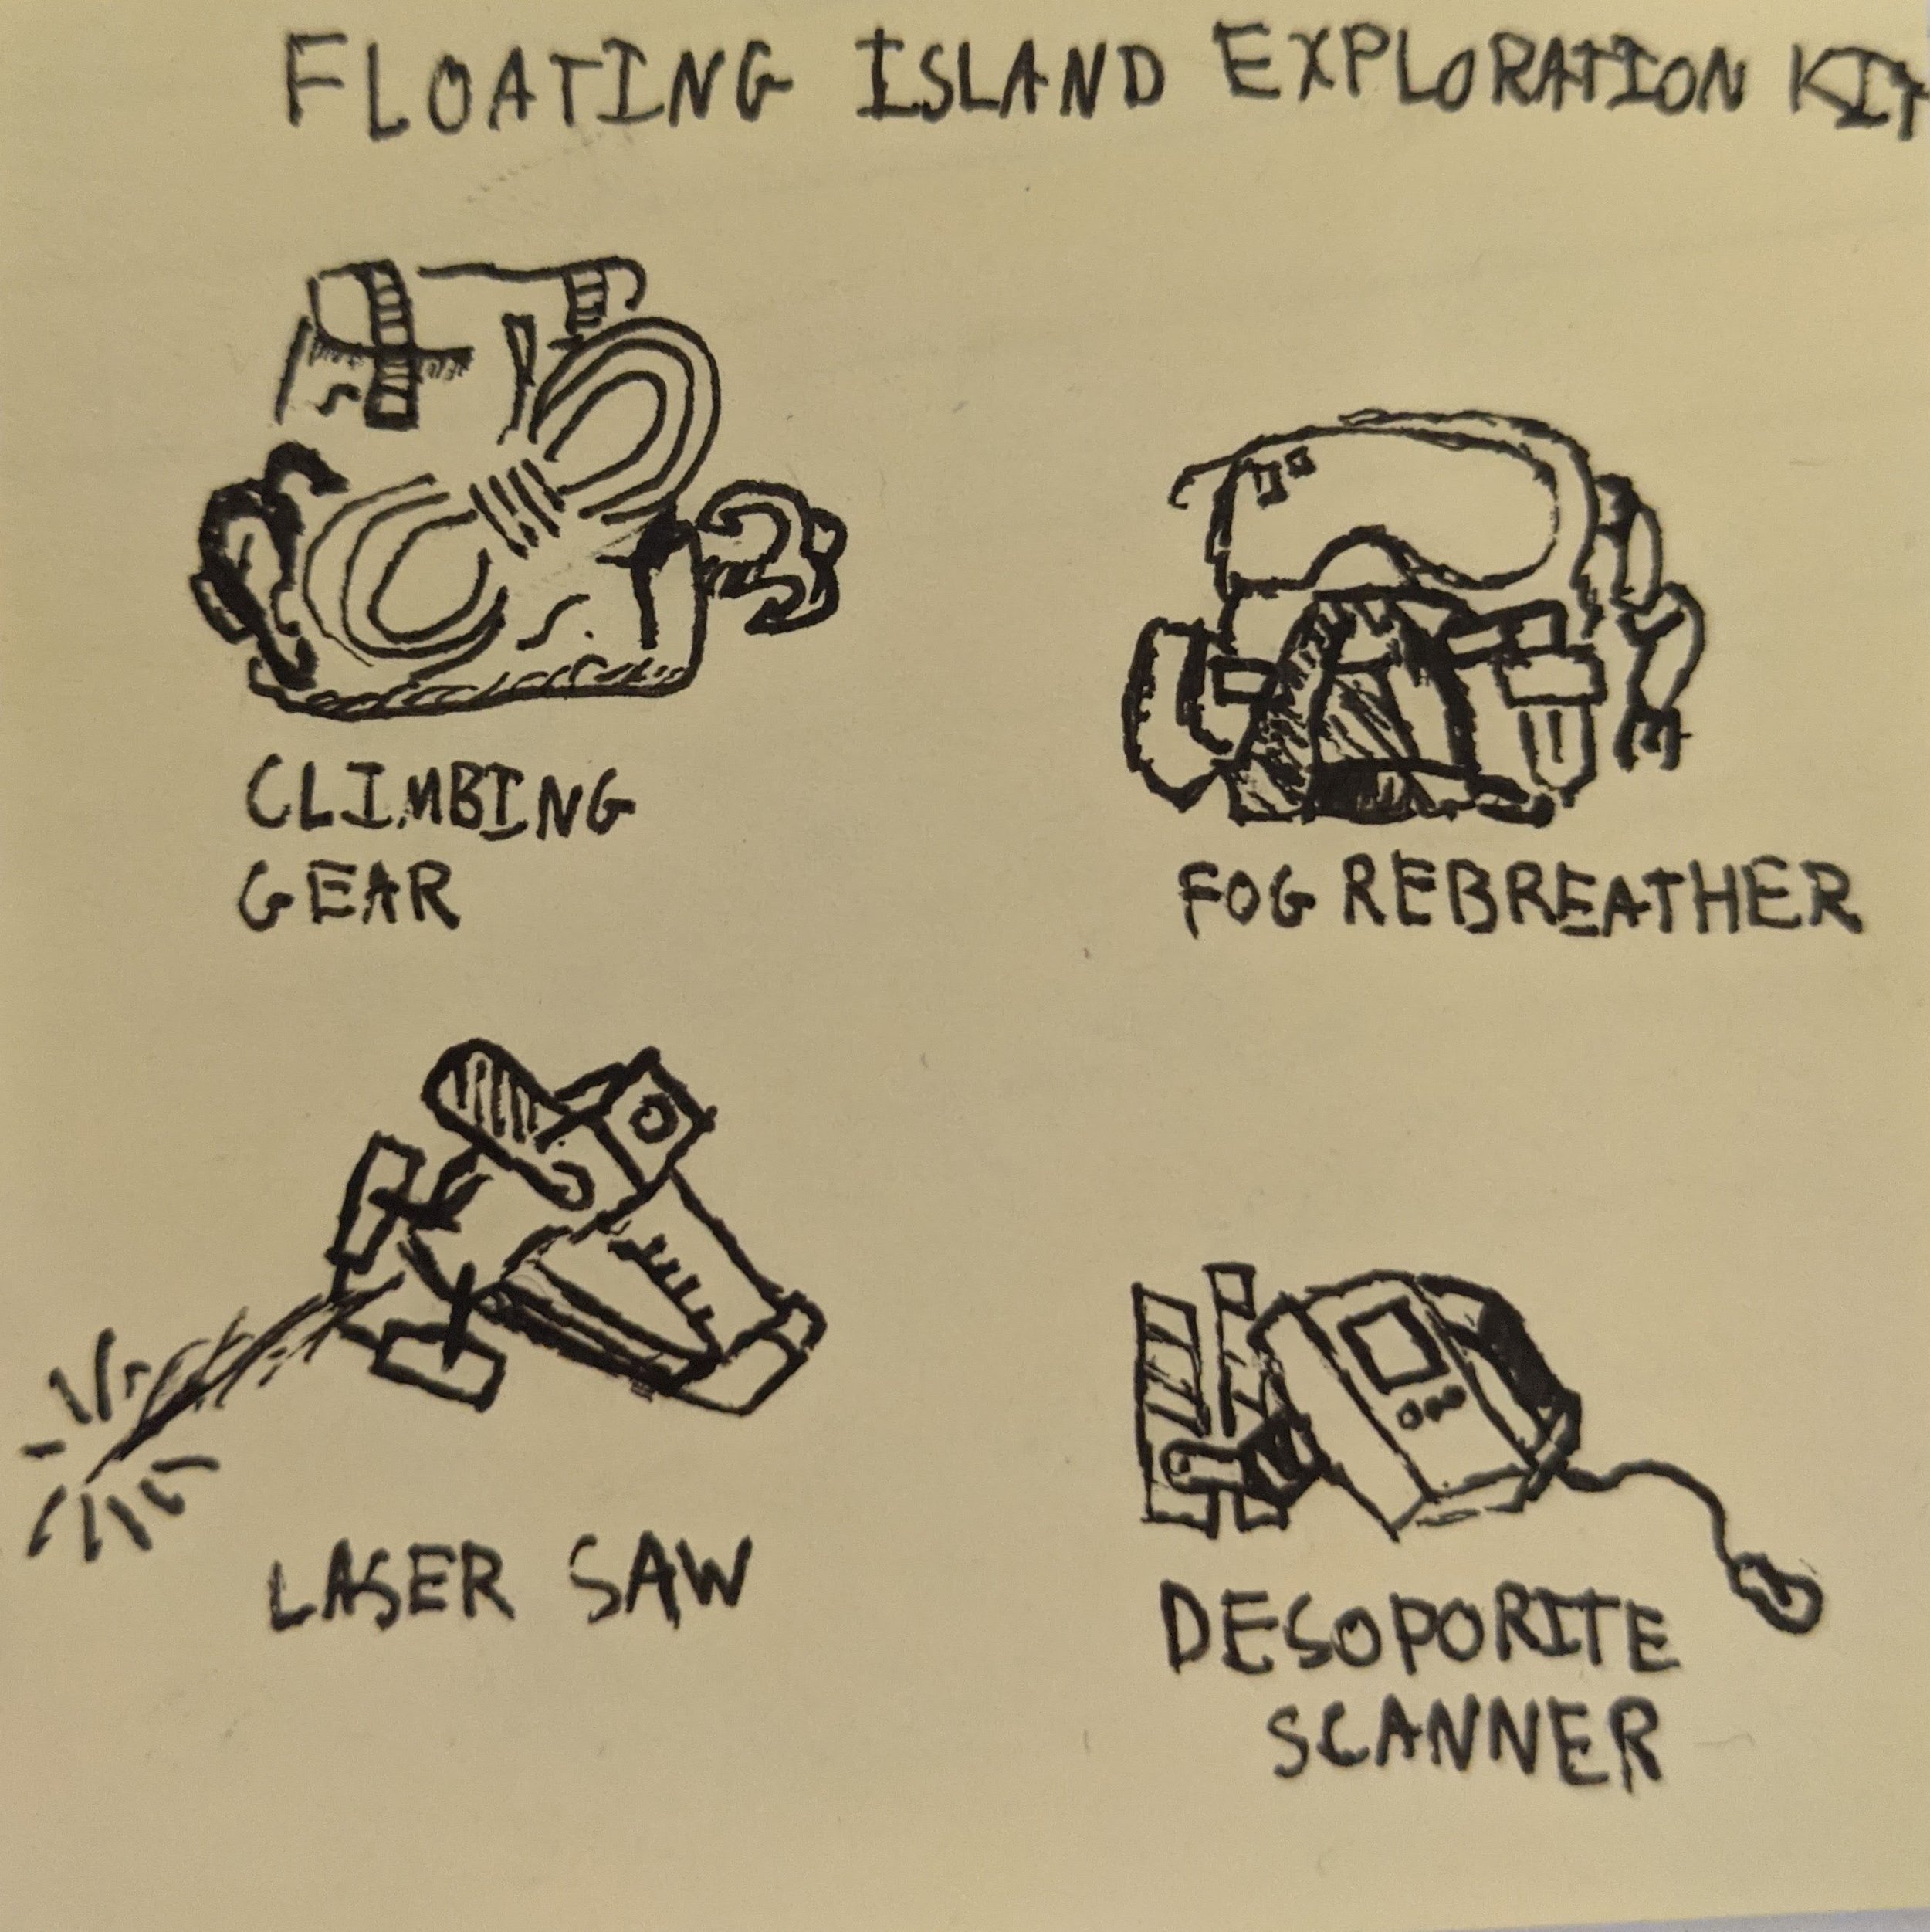 FLOATING ISLAND EXPLORATION KIT
CLIMBING
GEAR
FOG REBREATHER
LASER SAW
DESOPORITE
SCANNER